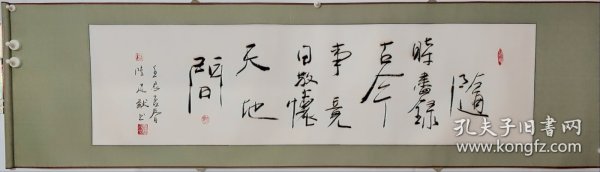 隨
時書録
古今
事竟
日懷
天地
間
孔夫子旧书网
www.kongfz.com